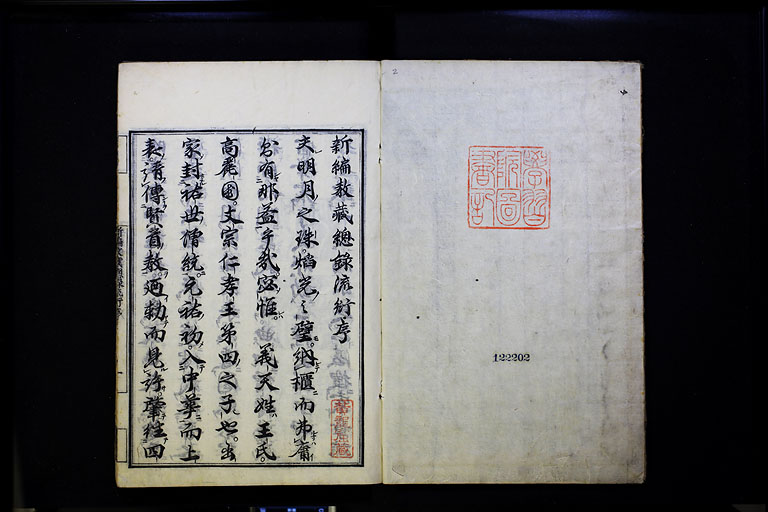 學習
院圖
書記
122202
新編教藏總錄流行序
夫明月之珠焔光之璧納櫃而弗庸
有那益乎哉窃惟義天姓王氏
高麗國文宗仁孝王第四之子也出
家封祐世僧統元祐初入中華而上
表請傳賢首教迺勅而見許肇往四